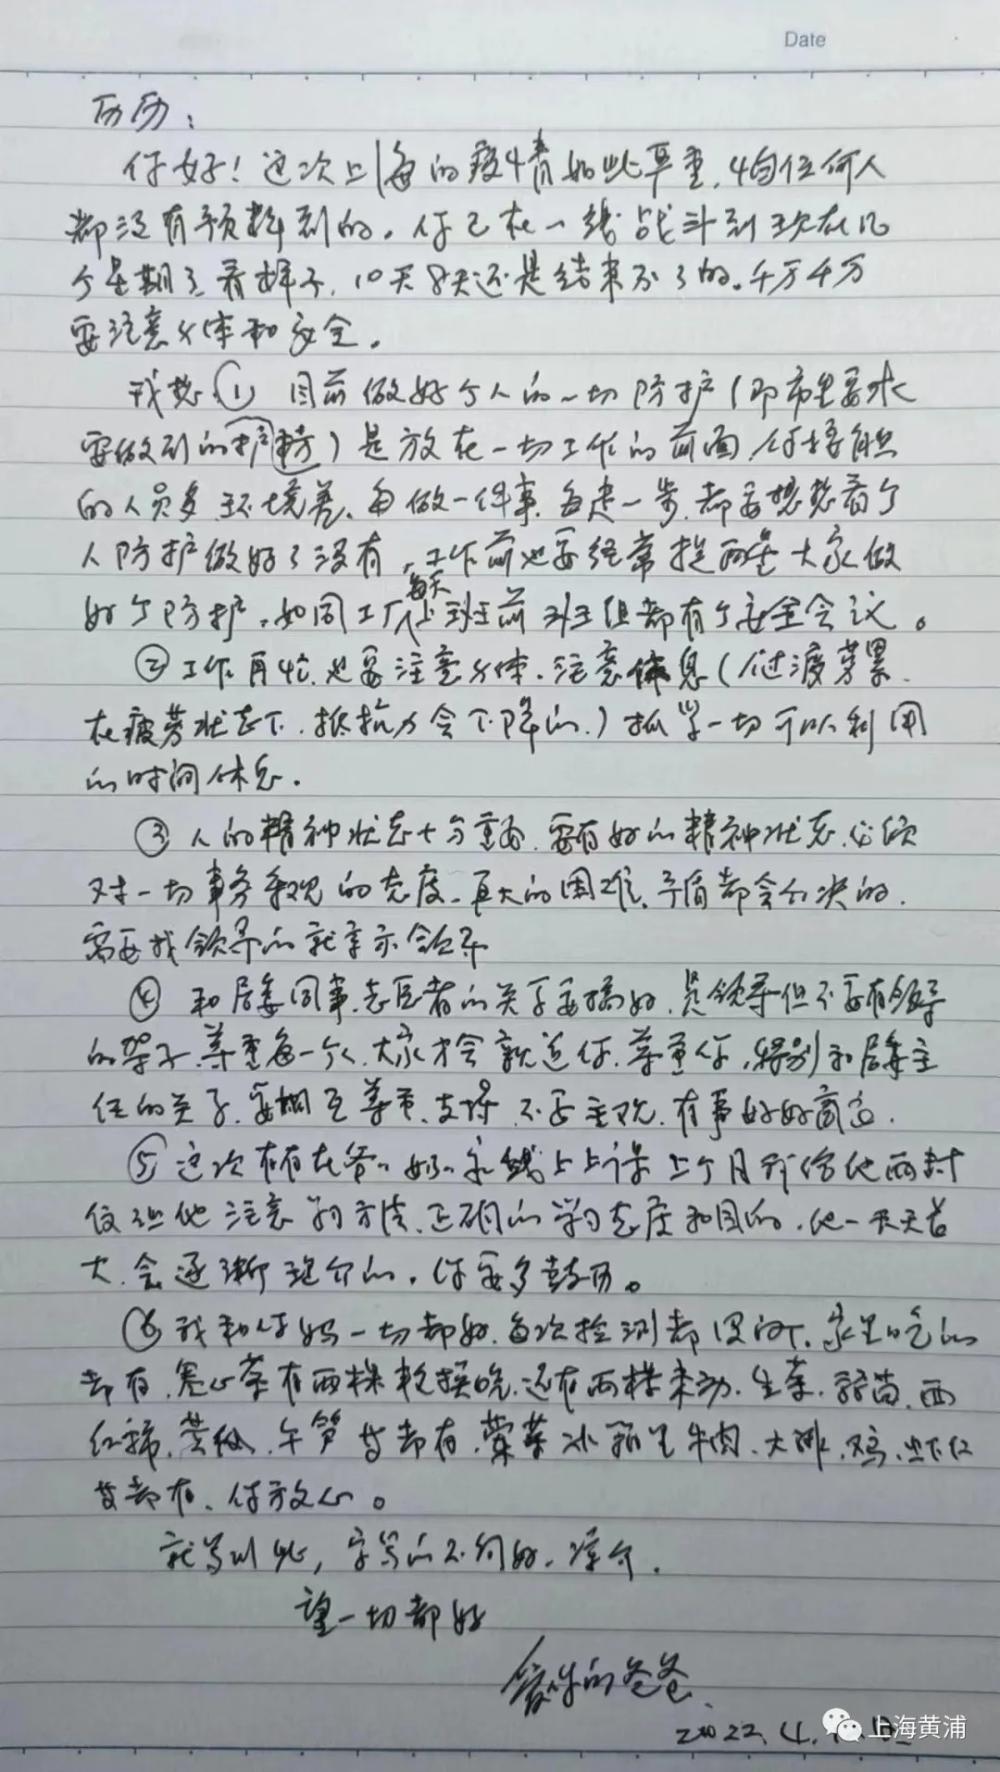 Date
历历：
你好！这次上海的疫情如此严重，恐怕任何人
都没有预料到的。你已在一线战斗到现在几
个星期了看样子，10天8天还是结束不了的。千万千万
要注意身体和安全。
我想①目前做好个人的一切防护（即市里要求
要做到的）是放在一切工作的前面，你接触
的人员多，环境差、每做一件事，每走一步，都要想想看个
人防护做好了没有，工作前也要经常提醒大家做
好个防护，如同工厂每天上班前班组都有个安全会议。
②工作再忙，也要注意身体，注意休息（过渡劳累，
在疲劳状态下，抵抗力会下降的）抓紧一切可以利用
的时间休息。
③人的精神状态十分重要，要有好的精神状态，必须
对一切事务乐观的态度，再大的困难、矛盾都会解决的，
需要找领导的就请示领导
④和居委同事、志愿者的关系要搞好，是领导但不要有领导
的架子，尊重每一个人，大家才会亲近你，尊重你，特别和居委主
任的关系，要相互尊重、支持，不要主观，有事好好商量。
⑤这次有在爷爷奶奶家线上上课，上个月我给他两封
信，让他注意学习方法、正确的学习态度和目的，他一天天长
大，会逐渐理解的，你要多鼓励。
⑥我和你妈一切都好，每次检测都没问题，家里吃的
都有，卷心菜有两棵，还有两棵未动，生菜、鸡毛菜、西
红柿、莴笋、冬笋等都有，荤菜冰箱里牛肉、大排、鸡、虾仁
等都有，你放心。
就写到此，字写的不何好，谅解，
望一切都好
爱你的爸爸
2022.4.
上海黄浦